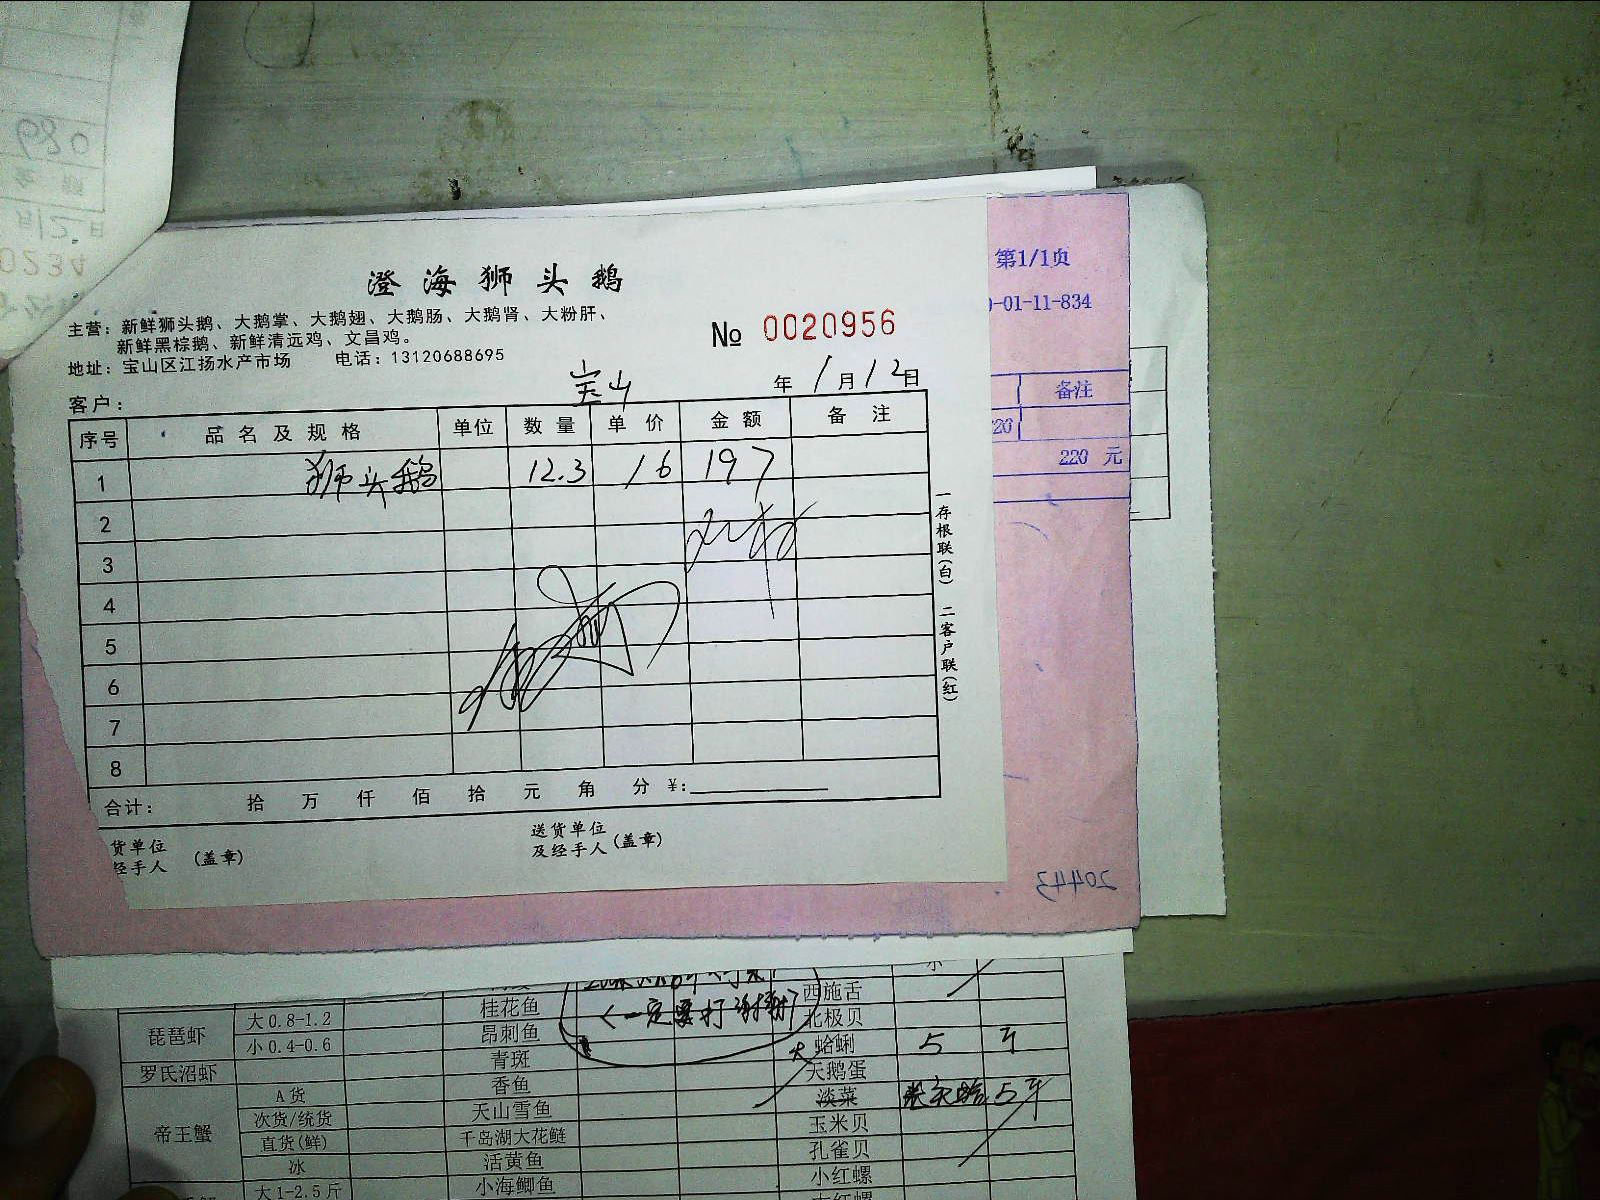 澄海狮头鹅
主营：新鲜狮头鹅、大鹅掌、大鹅翅、大鹅肠、大鹅肾、大粉肝、
新鲜黑棕鹅、新鲜清远鸡、文昌鸡。
地址：宝山区江扬水产市场 电话：13120688695
№ 0020956
客户： 宝山 年 1月12日
序号 品名及规格 单位 数量 单价 金额 备注
1 狮头鹅 12.3 16 197
2
3
4
5
6
7
8
合计： 拾 万 仟 佰 拾 元 角 分 ¥:
货单位
经手人 (盖章)
送货单位
及经手人 (盖章)
一存根联(白) 二客户联(红)
第1/1页
-01-11-834
备注
20
220 元
20443
980
金额
月12日
0234
桂花鱼 <一定要打 西施舌
琵琶虾 大0.8-1.2 昂刺鱼 北极贝
小0.4-0.6 青斑 大 蛤蜊 5 斤
罗氏沼虾 香鱼 天鹅蛋
帝王蟹 A货 天山雪鱼 淡菜 5斤
次货/统货 千岛湖大花鲢 玉米贝
直货(鲜) 活黄鱼 孔雀贝
冰 小海鲫鱼 小红螺
大1-2.5斤